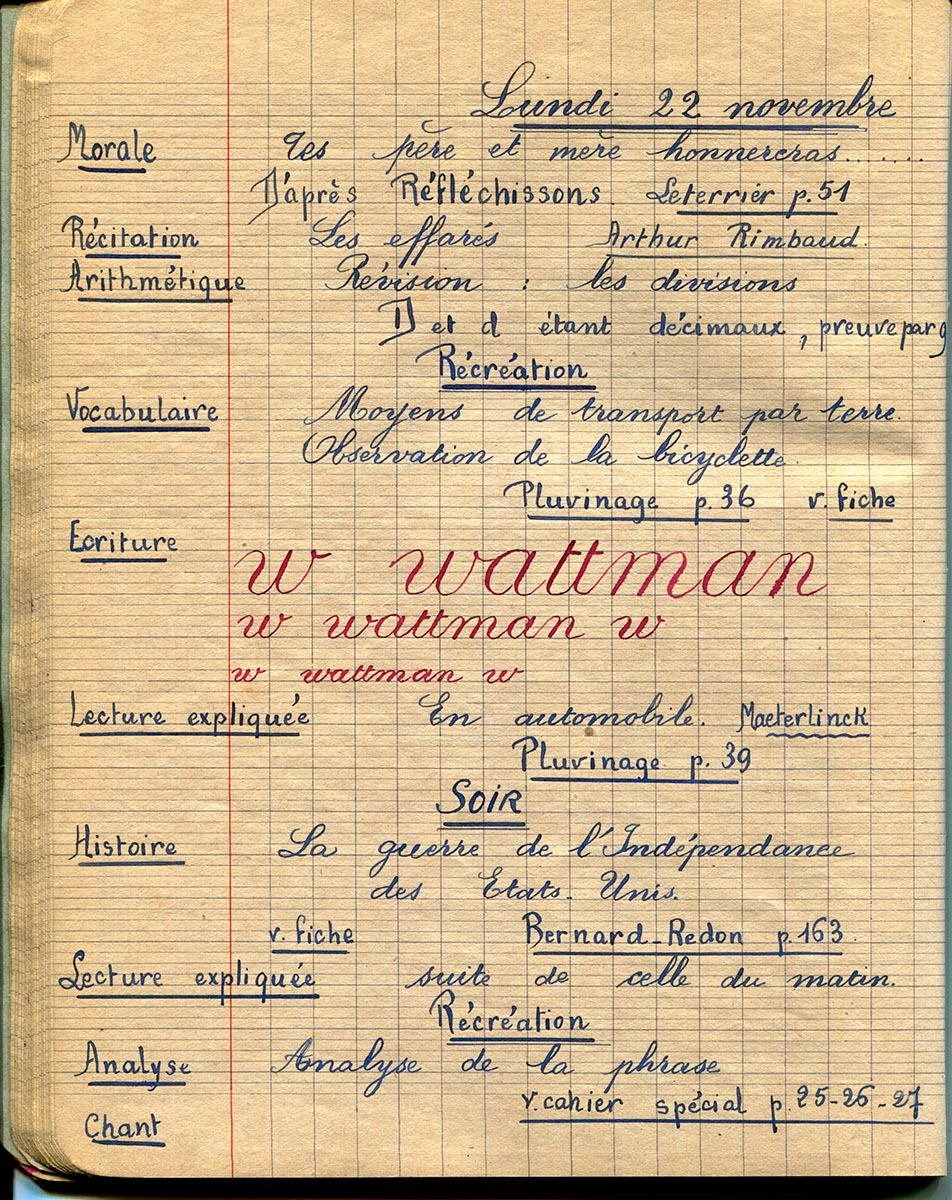 Lundi 22 novembre
Morale Tes père et mère honnereras........
D'après Réfléchissons. Leterrier p.51
Récitation Les effarés Arthur Rimbaud.
Arithmétique Révision : les divisions
D et d étant décimaux, preuve par 9
Récréation
Vocabulaire Moyens de transport par terre.
Observation de la bicyclette.
Pluvinage p.36 v. fiche
Ecriture w wattman
w wattman w
w wattman w
Lecture expliquée En automobile. Maeterlinck
Pluvinage p. 39
SOIR
Histoire La guerre de l'Indépendance
des Etats-Unis.
v. fiche Bernard-Redon p.163
Lecture expliquée suite de celle du matin.
Récréation
Analyse Analyse de la phrase
v. cahier spécial p. 25-26-27
Chant